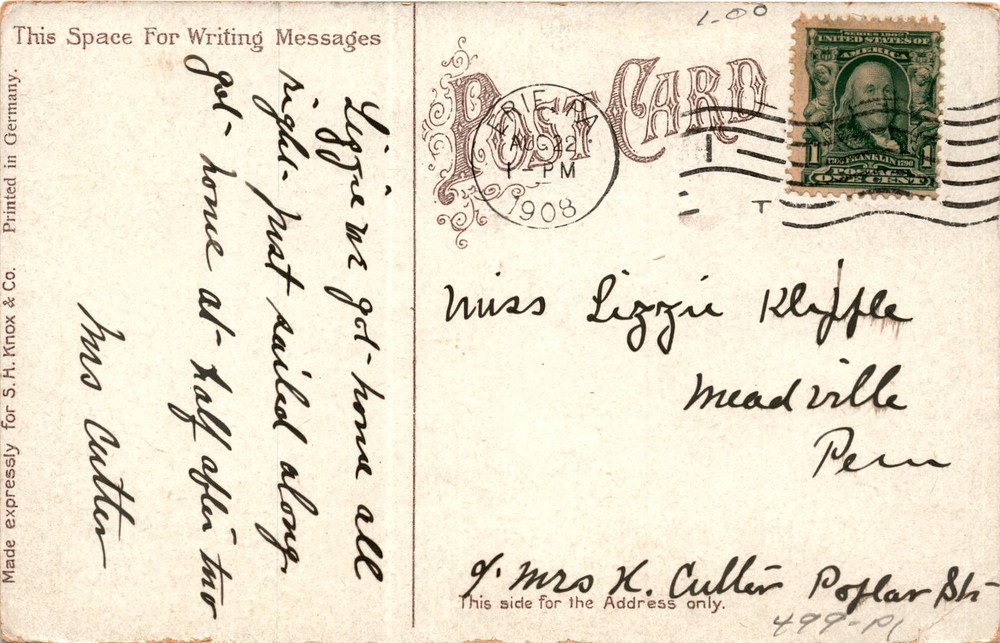 This Space For Writing Messages
Lizzie we got home all
right just sailed along.
got home at half after two
Mrs Cutter
Made expressly for S. H. Knox & Co. Printed in Germany.
1-00
POST CARD
ERIE, PA
AUG 22
1 - PM
1908
SERIES 1902
UNITED STATES OF
AMERICA
1706 FRANKLIN 1790
1 POSTAGE 1
ONE CENT
Miss Lizzie Kliffle
Meadville
Penn
c/o Mrs K. Cutter Poplar St
This side for the Address only.
499-P1